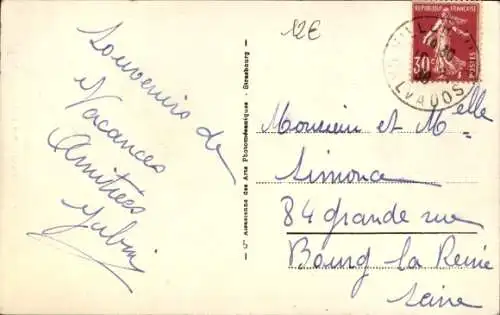 12€
REPUBLIQUE FRANÇAISE
30c
POSTES
Souvenirs de
Vacances
Amitiés
Cie Alsacienne des Arts Photomécaniques - Strasbourg
Monsieur et Melle
Simonce
84 grande rue
Bourg la Reine
Seine